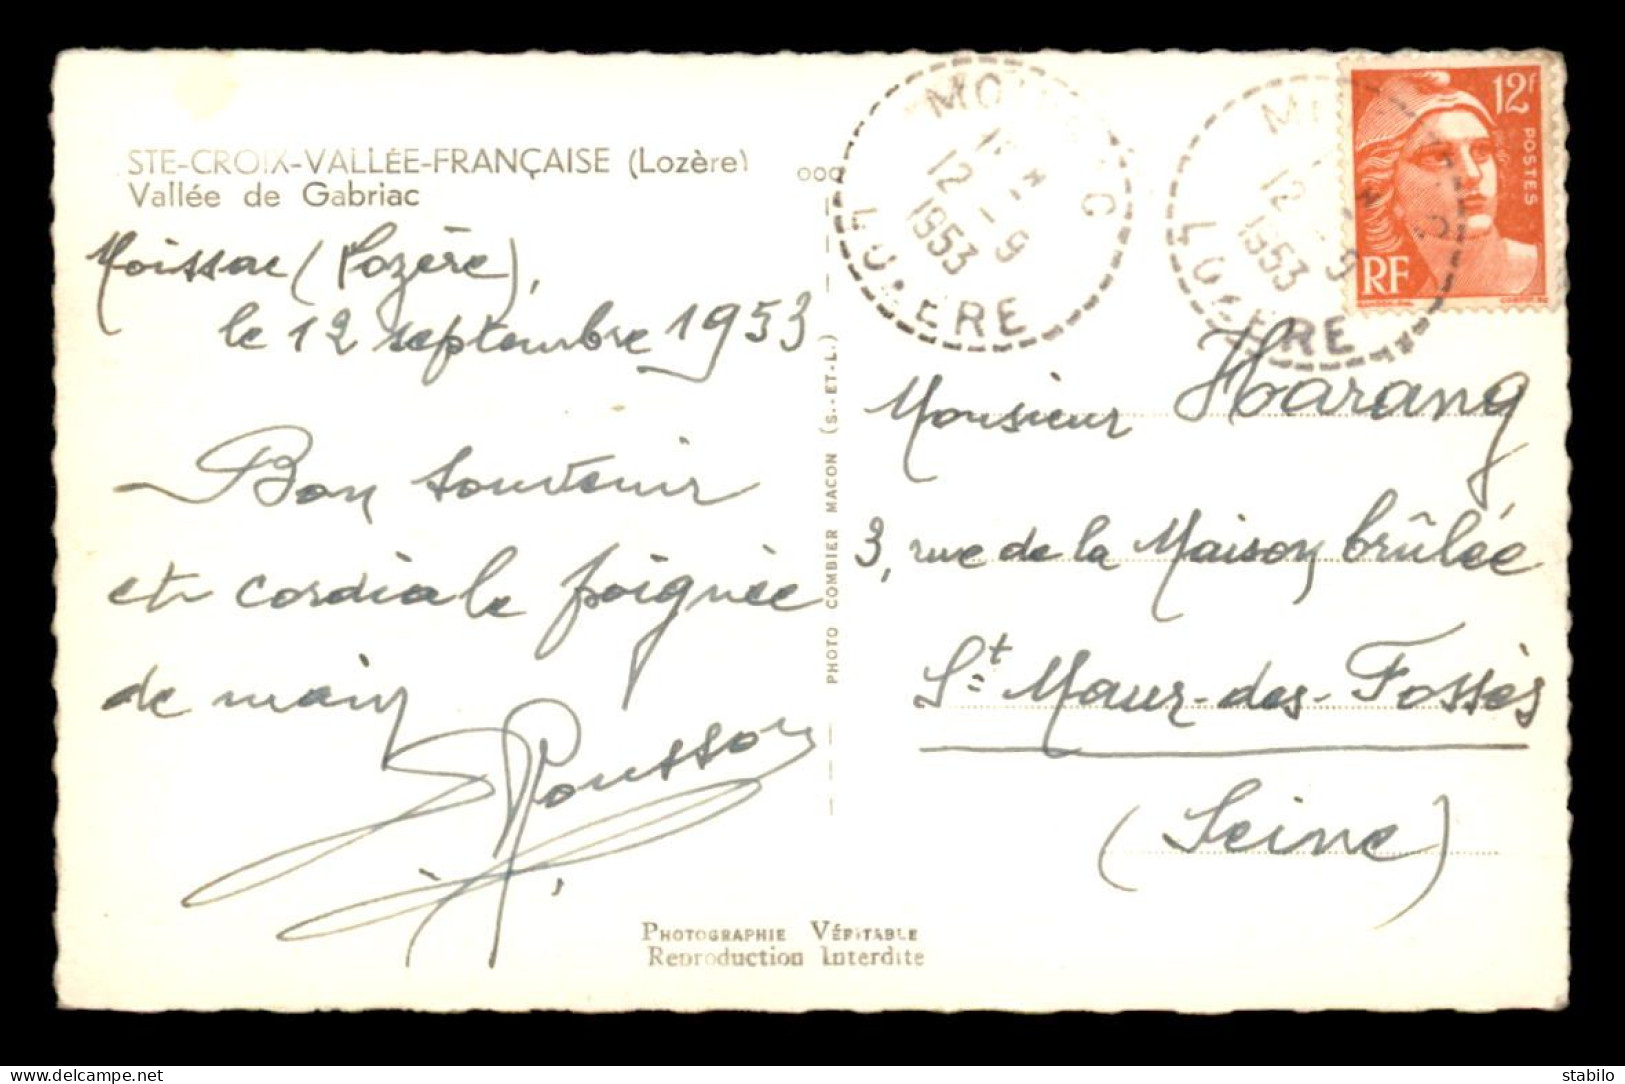 STE-CROIX-VALLÉE-FRANÇAISE (Lozère)
Vallée de Gabriac
Moissac (Lozère),
le 12 septembre 1953
Bon souvenir
et cordiale poignée
de main
Pousson
PHOTO COMBIER MACON (S.-ET-L.)
PHOTOGRAPHIE VÉRITABLE
Reproduction Interdite
12 - 9
1953
LOZERE
12 9
1953
LOZERE
12F
POSTES
RF
Monsieur Harang
3, rue de la Maison brûlée
St Maur-des-Fossés
(Seine)
stabilo